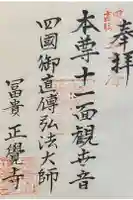 奉拝
本尊十一面観世音
四國御直傳弘法大師
冨貴 正覺寺